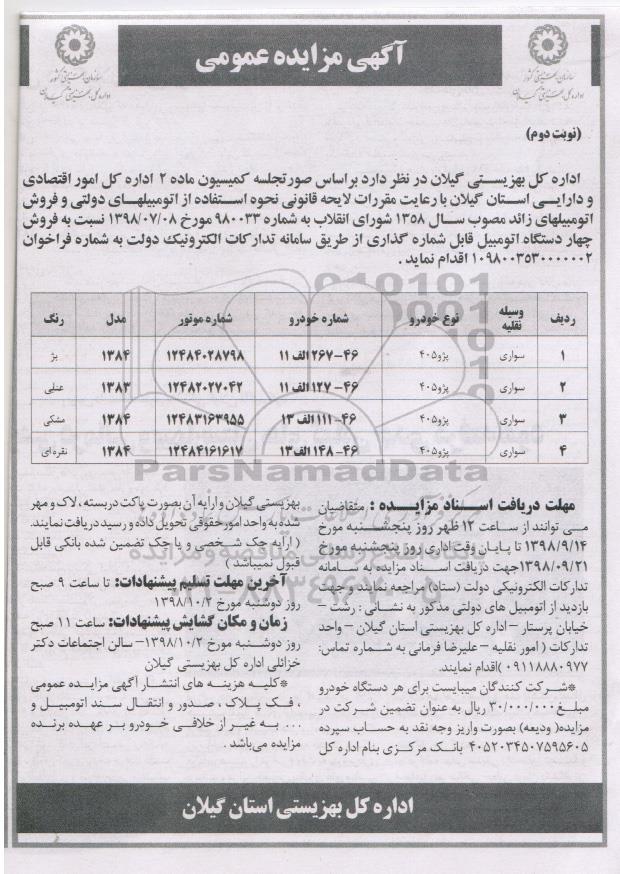 آگهی مزایده عمومی
سازمان بهزیستی کشور
اداره کل بهزیستی گیلان
سازمان بهزیستی کشور
اداره کل بهزیستی گیلان
(نوبت دوم)
اداره کل بهزیستی گیلان در نظر دارد براساس صورتجلسه کمیسیون ماده ۲ اداره کل امور اقتصادی
و دارایی استان گیلان با رعایت مقررات لایحه قانونی نحوه استفاده از اتومبیلهای دولتی و فروش
اتومبیلهای زائد مصوب سال ۱۳۵۸ شورای انقلاب به شماره ۹۸۰۰۳۳ مورخ ۱۳۹۸/۰۷/۰۸ نسبت به فروش
چهار دستگاه اتومبیل قابل شماره گذاری از طریق سامانه تدارکات الکترونیک دولت به شماره فراخوان
۱۰۹۸۰۰۳۵۳۰۰۰۰۰۰۲ اقدام نماید .
ردیف وسیله نقلیه نوع خودرو شماره خودرو شماره موتور مدل رنگ
۱ سواری پژو۴۰۵ ۴۶-۲۶۷ الف ۱۱ ۱۲۴۸۴۰۲۸۷۹۸ ۱۳۸۴ بژ
۲ سواری پژو۴۰۵ ۴۶- ۱۲۷ الف ۱۱ ۱۲۴۸۲۰۲۷۰۴۲ ۱۳۸۳ عنلی
۳ سواری پژو۴۰۵ ۴۶- ۱۱۱ الف ۱۳ ۱۲۴۸۳۱۶۳۹۵۵ ۱۳۸۴ مشکی
۴ سواری پژو۴۰۵ ۴۶- ۱۴۸ الف ۱۳ ۱۲۴۸۴۱۶۱۶۱۷ ۱۳۸۴ نقره ای
ParsNamadData
مهلت دریافت اسناد مزایده : متقاضیان
می توانند از ساعت ۱۲ ظهر روز پنجشنبه مورخ
۱۳۹۸/۹/۱۴ تا پایان وقت اداری روز پنجشنبه مورخ
۱۳۹۸/۰۹/۲۱ جهت دریافت اسناد مزایده به سامانه
تدارکات الکترونیکی دولت (ستاد) مراجعه نمایند و جهت
بازدید از اتومبیل های دولتی مذکور به نشانی : رشت –
خیابان پرستار – اداره کل بهزیستی استان گیلان – واحد
تدارکات ( امور نقلیه – علیرضا فرمانی به شماره تماس:
۰۹۱۱۸۸۸۰۹۷۷ )اقدام نمایند.
*شرکت کنندگان میبایست برای هر دستگاه خودرو
مبلغ ۳۰/۰۰۰/۰۰۰ ریال به عنوان تضمین شرکت در
مزایده( ودیعه) بصورت واریز وجه نقد به حساب سپرده
۴۰۵۲۰۳۴۵۰۷۵۹۵۶۰۵ بانک مرکزی بنام اداره کل
بهزیستی گیلان و ارایه آن بصورت پاکت دربسته ، لاک و مهر
شده به واحد امور حقوقی تحویل داده و رسید دریافت نمایند.
( ارایه چک شخصی و یا چک تضمین شده بانکی قابل
قبول نمیباشد )
آخرین مهلت تسلیم پیشنهادات: تا ساعت ۹ صبح
روز دوشنبه مورخ ۱۳۹۸/۱۰/۲
زمان و مکان گشایش پیشنهادات: ساعت ۱۱ صبح
روز دوشنبه مورخ ۱۳۹۸/۱۰/۲– سالن اجتماعات دکتر
خزائلی اداره کل بهزیستی گیلان
*کلیه هزینه های انتشار آگهی مزایده عمومی
، فک پلاک ، صدور و انتقال سند اتومبیل و
... به غیر از خلافی خودرو بر عهده برنده
مزایده می‌باشد .
اداره کل بهزیستی استان گیلان